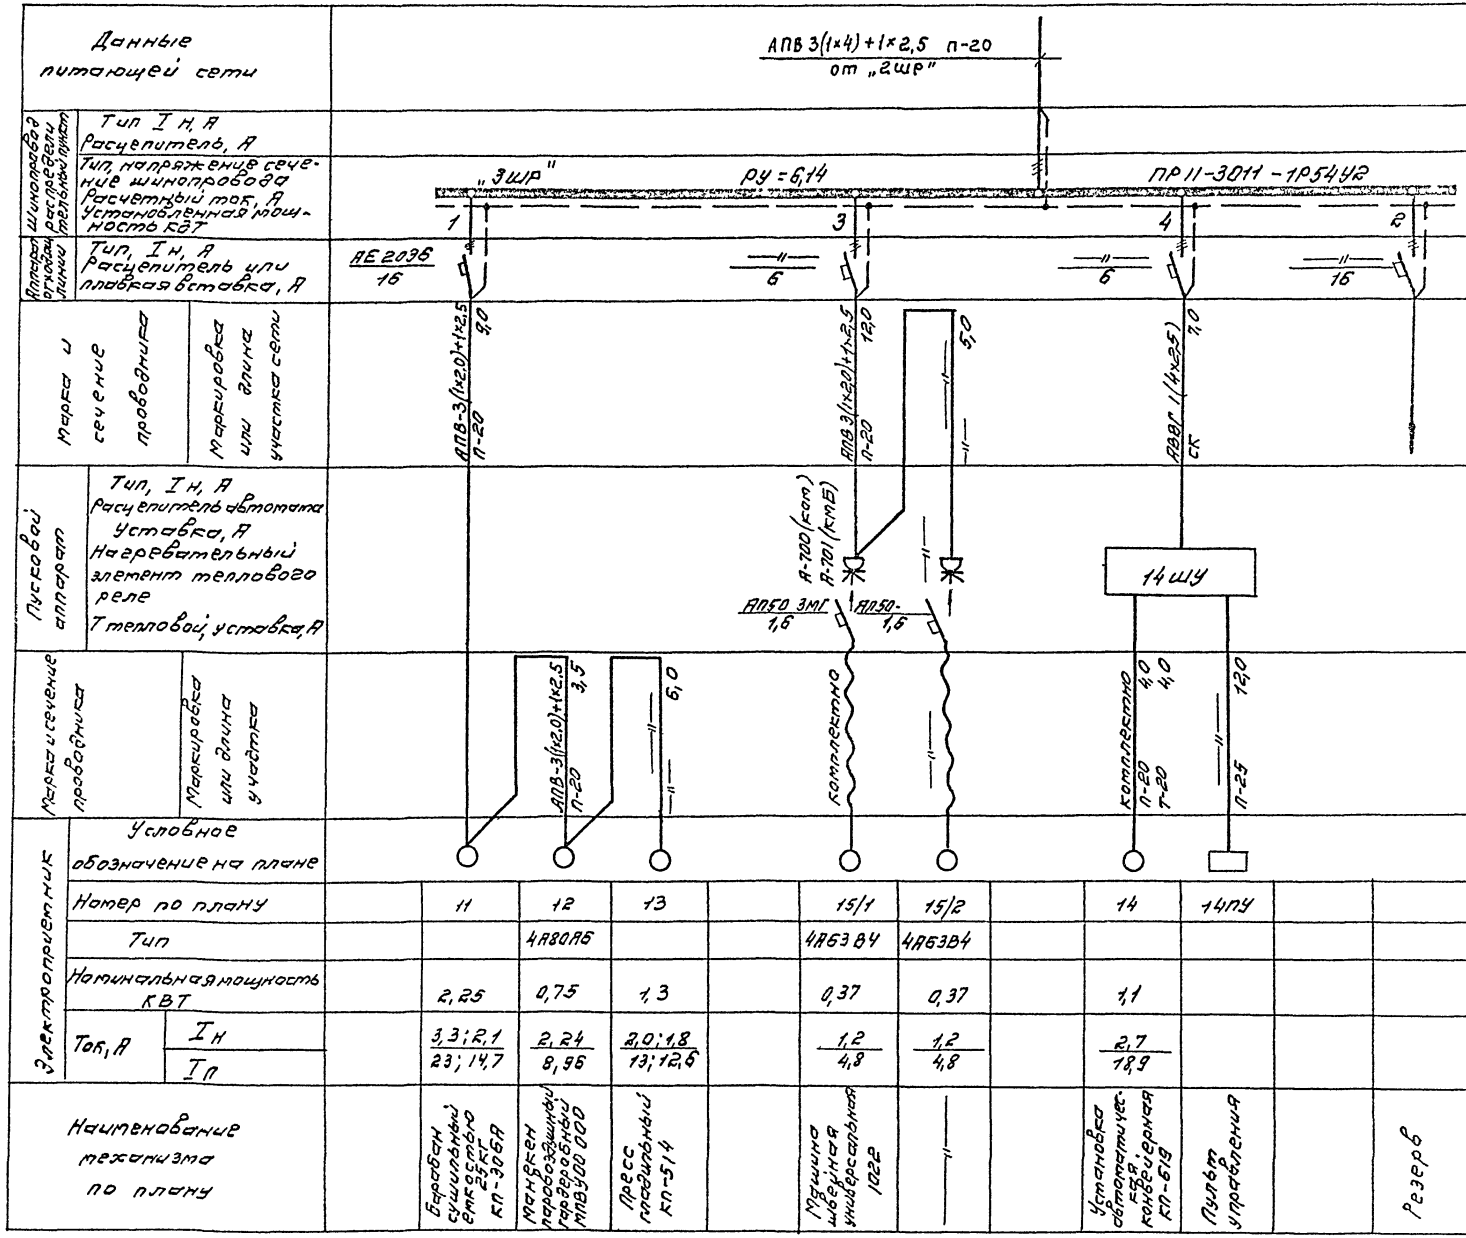 Данные
питающей сети
АПВ 3(1×4)+1×2,5 п-20
от „2ШР"
Шинопровод
распредели
тельный пункт
Тип Iн, А
Расцепитель, А
Тип, напряжение сече-
ние шинопровода
Расчетный ток, А
Установленная мощ-
ность кВт
„3ШР"
Ру = 6,14
ПР11-3011-1Р54У2
1
3
4
2
Аппарат
отходящ
линии
Тип, Iн, А
Расцепитель или
плавкая вставка, А
АЕ2036
16
—"—
6
—"—
6
—"—
16
Марка и
сечение
проводника
Маркировка
или длина
участка сети
АПВ-3(1×2,0)+1×2,5
п-20
9,0
АПВ3(1×2,0)+1×2,5
п-20
12,0
—"—
—"—
5,0
АВВГ 1(4×2,5)
ск
7,0
Пусковой
аппарат
Тип, Iн, А
Расцепитель автомата
Уставка, А
Нагревательный
элемент теплового
реле
Т тепловой, уставка, А
А-700(кат)
А-701(КМБ)
—"—
АП50 3МГ
1,6
АП50-
1,6
14ШУ
Марка и сечение
проводника
Маркировка
или длина
участка
АПВ-3(1×2,0)+1×2,5
п-20
3,5
—"—
—"—
6,0
комплектно
—"—
комплектно
п-20 4,0
т-20 4,0
—"—
п-25 12,0
Электроприемник
Условное
обозначение на плане
Номер по плану
11
12
13
15/1
15/2
14
14ПУ
Тип
4А80А6
4А63В4
4А63В4
Номинальная мощность
КВТ
2,25
0,75
1,3
0,37
0,37
1,1
Ток, А
Iн
Iп
3,3; 2,1
23; 14,7
2,24
8,96
2,0; 1,8
13; 12,6
1,2
4,8
1,2
4,8
2,7
18,9
Наименование
механизма
по плану
Барабан
сушильный
емкостью
25кг
КП-306А
Манекен
паровоздушный
гардеробный
МПВУ00 000
Пресс
гладильный
КП-514
Машина
швейная
универсальная
1022
—"—
Установка
автоматичес-
кая
конвейерная
КП-619
Пульт
управления
Резерв